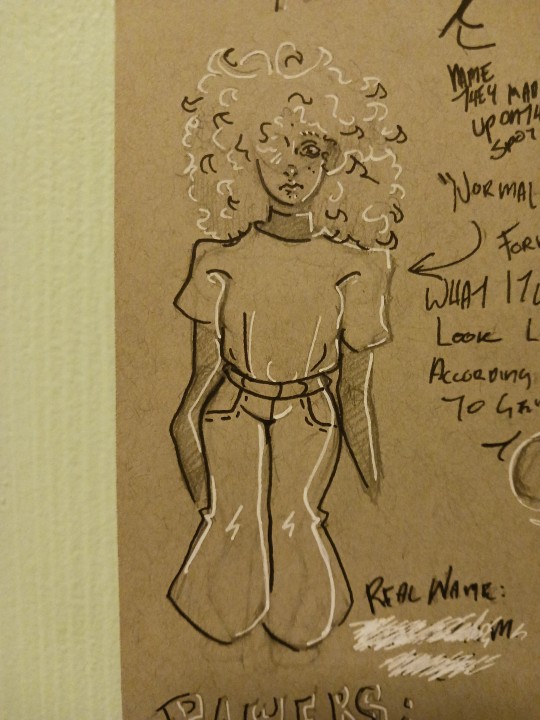 NAME
THEY MAD
UP ON TH
SPOT
"NORMAL
FOR
WHAT I
LOOK L
ACCORDING
TO GE
REAL NAME:
POWERS: